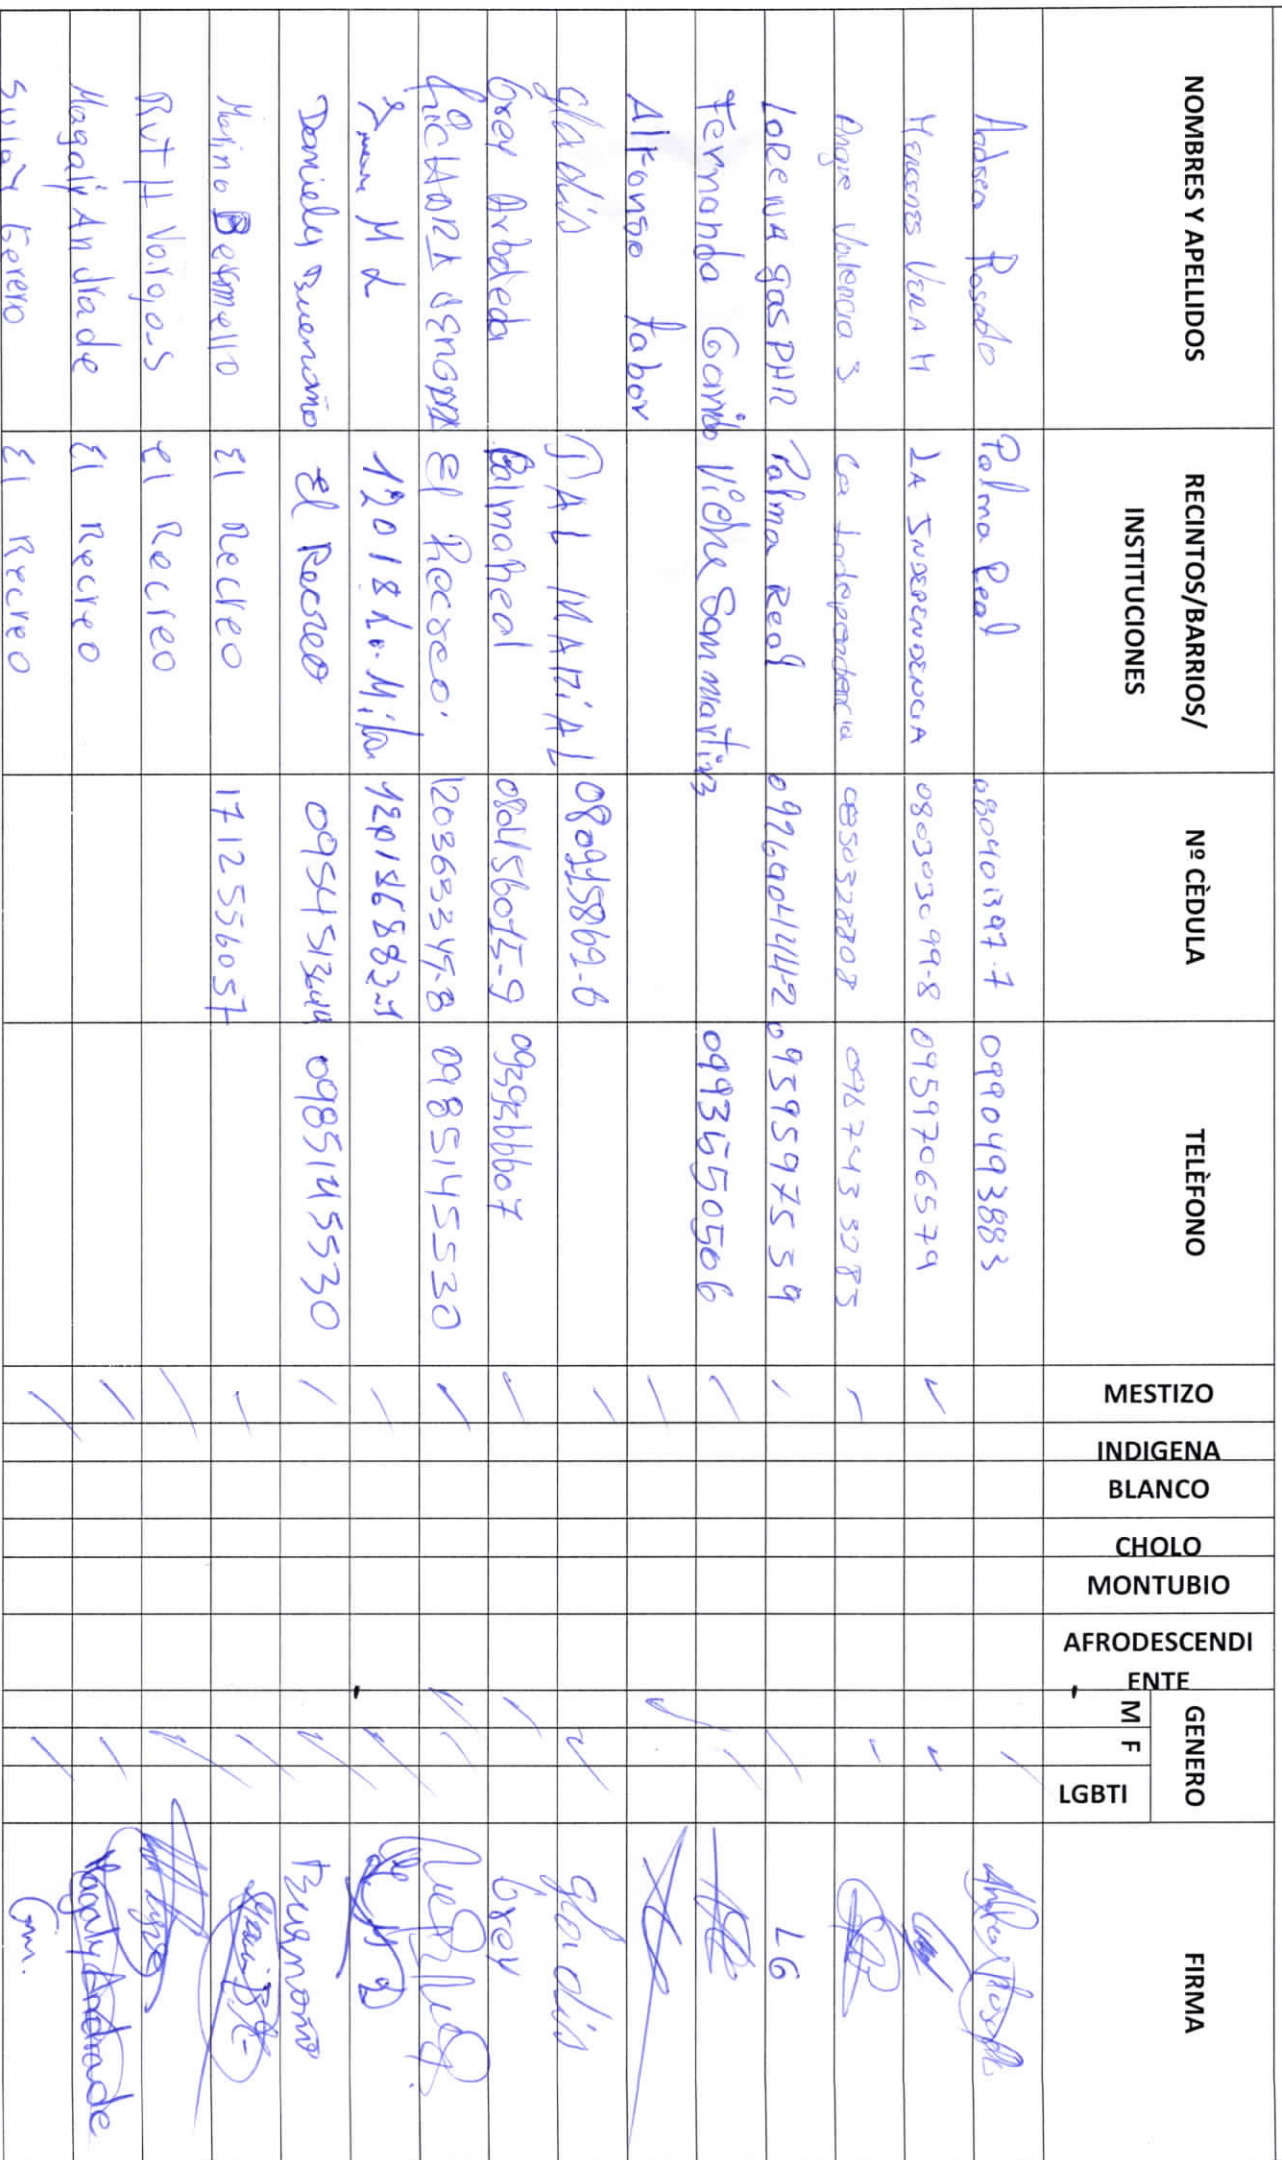 NOMBRES Y APELLIDOS RECINTOS/BARRIOS/ INSTITUCIONES Nº CÈDULA TELÈFONO MESTIZO INDIGENA BLANCO CHOLO MONTUBIO AFRODESCENDI ENTE GENERO M F LGBTI FIRMA
Andrea Rosado Palma Real 080401397-7 0990493883
Mercedes Vera M LA INDEPENDENCIA 080303099-8 0959706579
Angie Valencia S La Independencia 0850328208
LORENA gasPAR Palma Real 0959597539 LG
Fernanda Garrido Viche San Martin 0993550506
Alfonso Tabor
Gladis 080915869-6 Gladis
Grey Arboleda Palmareal Grey
El Recreo. 120363345-8 0985145530
M L 12018 120186883-1
Daniela Buenaño El Recreo 0985145530 Buenaño
Marino Bermello El Recreo 1712556057
RutH Vargas El Recreo
Magaly Andrade El Recreo Magaly Andrade
El Recreo Gm.